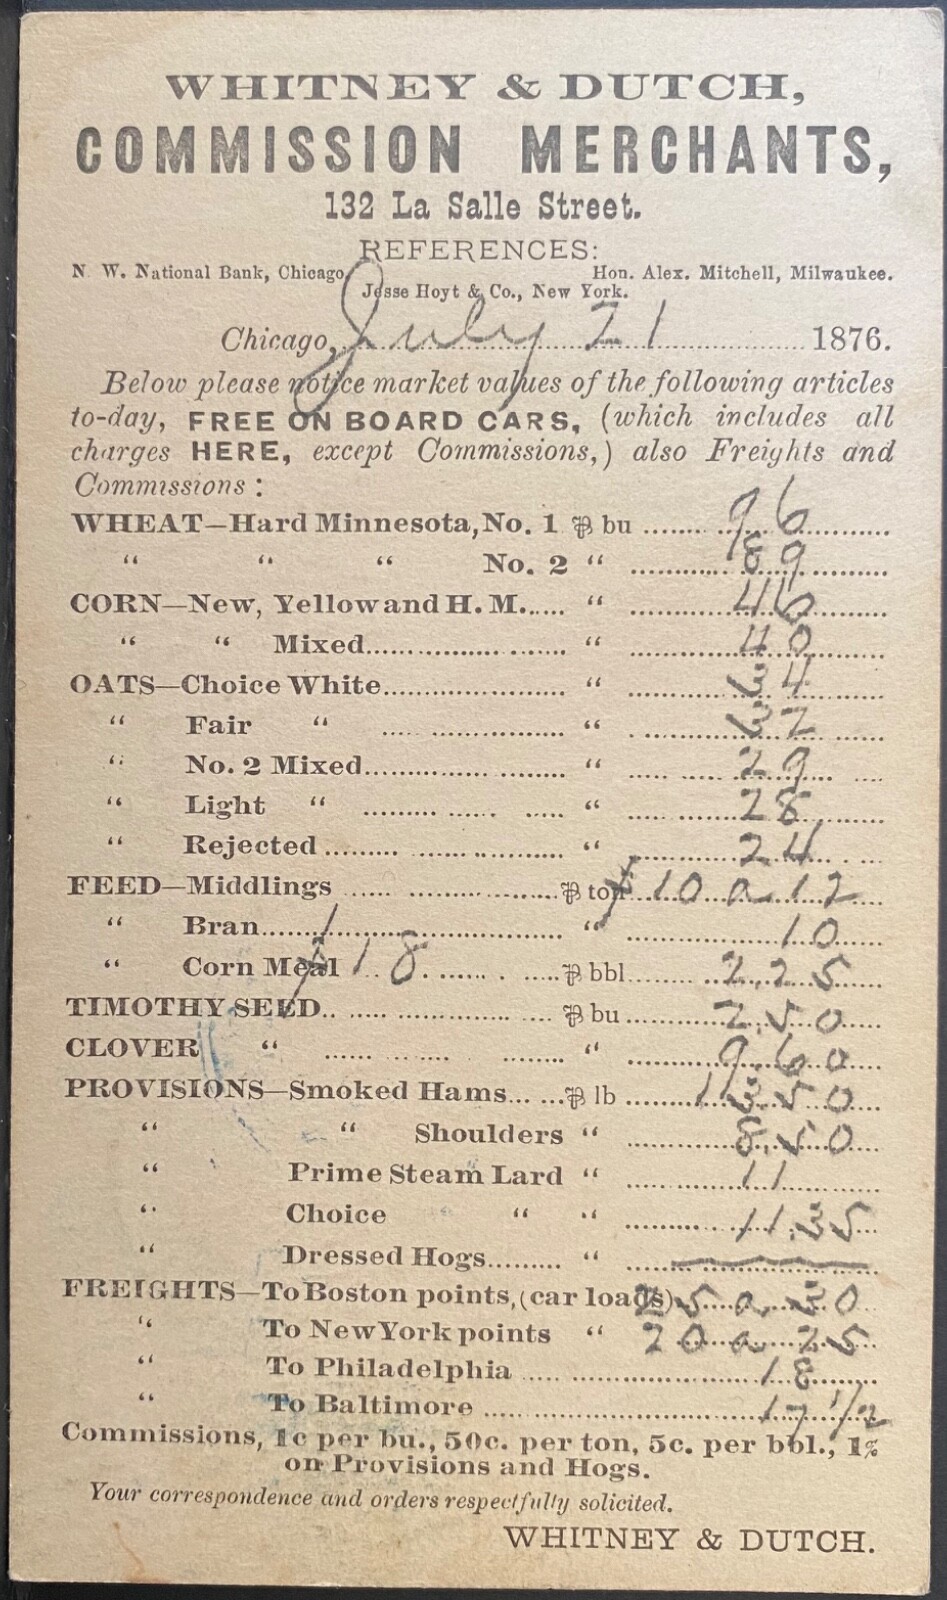 WHITNEY & DUTCH,
COMMISSION MERCHANTS,
132 La Salle Street.
REFERENCES:
N. W. National Bank, Chicago. Hon. Alex. Mitchell, Milwaukee.
Jesse Hoyt & Co., New York.
Chicago, July 21 1876.
Below please notice market values of the following articles
to-day, FREE ON BOARD CARS, (which includes all
charges HERE, except Commissions,) also Freights and
Commissions:
WHEAT—Hard Minnesota, No. 1 ⅌ bu 96
" " " No. 2 " 89
CORN—New, Yellow and H. M. " 46
" " Mixed " 40
OATS—Choice White " 34
" Fair " " 32
" No. 2 Mixed " 29
" Light " " 28
" Rejected " 24
FEED—Middlings ⅌ ton $10 a 12
" Bran " 10
" Corn Meal $18 ⅌ bbl 2.25
TIMOTHY SEED ⅌ bu 2.50
CLOVER " " 9.60
PROVISIONS—Smoked Hams ⅌ lb 13.50
" " Shoulders " 8.50
" Prime Steam Lard " 11
" Choice " " 11.35
" Dressed Hogs "
FREIGHTS—To Boston points, (car loads) 25 a 30
" To New York points " 20 a 25
" To Philadelphia 18
" To Baltimore 17 1/2
Commissions, 1c per bu., 50c. per ton, 5c. per bbl., 1%
on Provisions and Hogs.
Your correspondence and orders respectfully solicited.
WHITNEY & DUTCH.